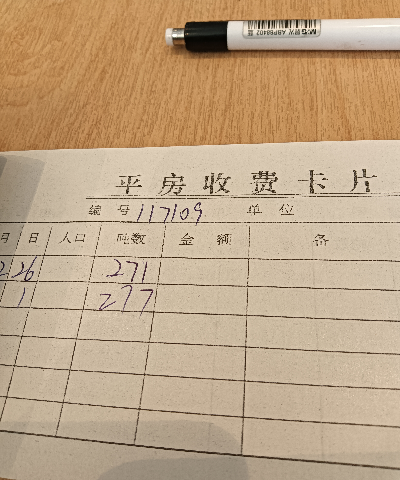 M&G 晨光 ABP88402
平房收费卡片
编号 117109 单位
月 日 人口 吨数 金额 备
2 26 271
1 277